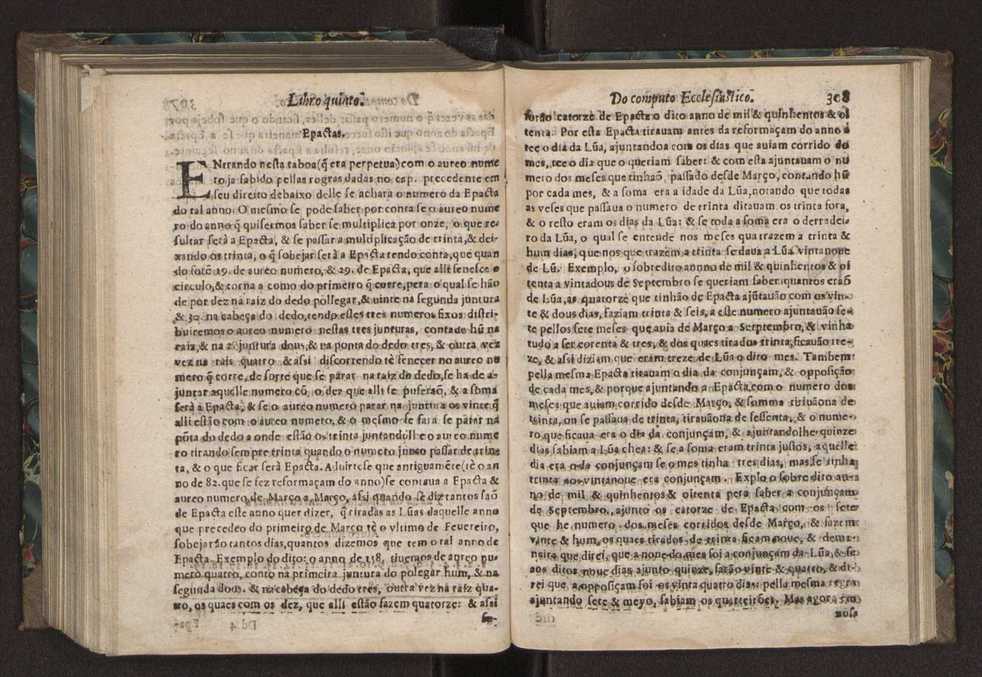 Libro quinto.
Epactas.
ENtrando nesta taboa (q̃ era perpetua) com o aureo nume
ro ja sabido pellas regras dadas no cap. precedente em
seu direito debaixo delle se achara o numero da Epacta
do tal anno: O mesmo se pode saber por conta se o aureo nume
ro do anno q̃ quisermos saber se multiplica por onze, o que re-
sultar serà a Epacta, & se passar a multiplicação de trinta, & dei-
xando os trinta, o q̃ sobejar serà a Epacta tendo conta, que quan
do foré 19. de aureo numero, & 29. de Epacta, que alli fenesce o
circulo, & torna a como do primeiro q̃ corre, pera o qual se hão
de por dez na raiz do dedo pollegar, & uinte na segunda juntura
& 30. na cabeça do dedo, tendo esses tres numeros fixos distri-
buiremos o aureo numero nestas tres junturas, contado hũ na
raiz, & na 2. juntura dous, & na ponta do dedo tres, & outra vez
vez na rais quatro & assi discorrendo tè fenecer no aureo nu
mero q̃ corre, de sorte que se parar na raiz do dedo, se ha de a-
juntar aquelle numero cõ o dez que alli se puserão, & a soma
serà a Epacta, & se o aureo numero parar na juntura os vinte q̃
alli estão com o aureo numero, & o mesmo se fara se parar na
põta do dedo a onde estão os trinta juntandolhe o aureo nume
ro tirando sempre trinta quando o numero junto passar de trinta
ta, & o que ficar serà Epacta. Aduirtese que antiguamẽte (tè o an
no de 82. que se fez reformaçam do anno) se contaua a Epacta &
aureo numero de Março a Março, assi quando se diz tantos saõ
de Epacta este anno quer dizer, q̃ tiradas as Lũas daquelle anno
que precedeo do primeiro de Março tè o vltimo de Feuereiro,
sobejarão tantos dias, quantos dizemos que tem o tal anno de
Epacta. Exemplo do dito: o anno de 158, tiuemos de aureo nu-
mero quatro, conto na primeira juntura do polegar hum, & na
segunda dous, & na cabeça do dedo tres, outra vez na raiz qua-
tro, os quaes com os dez, que alli estão fazem quatorze: & assi
Do computo Ecclesiastico. 308
forão catorze de Epacta o dito anno de mil & quinhentos & oi
tenta. Por esta Epacta tirauam antes da reformaçam do anno
o dia da Lũa, ajuntandoa com os dias que auiam corrido do
mes, tee o dia que o queriam saber: & com esta ajuntauam o nu
mero dos meses que tinhaõ passado desde Março, contando hũ
por cada mes, & a soma era a idade da Lũa, notando que todas
as veses que passaua o numero de trinta ditauam os trinta fora,
& o resto eram os dias da Lũa: & se toda a soma era o derradei-
ro da Lũa, o qual se entende nos meses que trazem a trinta &
hum dias, que nos que trazem a trinta se daua a Lũa vintanoue
de Lũ. Exemplo, o sobredito annno de mil & quinhentos & oi
tenta a vintadous de Septembro se queriam saber quantos eraõ
de Lũa, as quatorze que tinhão de Epacta ajũtauão com os vin-
te & dous dias, faziam trinta & seis, a este numero ajuntauão se-
te pellos sete meses que auia de Março a Serptembro, & vinha
tudo a ser corenta & tres, & dos quaes tirados trinta, ficauão tre-
ze, & assi diziam que eram treze de Lũa o dito mes. Tambem
pella mesma Epacta tirauam o dia da conjunçam, & opposição
de cada mes, & porque ajuntando a Epacta com o numero dos
meses que auiam corrido desde Março, & somma tirauãona de
trinta, ou se passaua de trinta, tirauãona de sessenta, & o nume-
ro que ficaua era o dia da conjunçam, & ajuntandolhe quinze
dias sabiam a Lũa chea: & se a soma eram trinta justos, aquelle
dia era o da conjunçam se o mes tinha tres dias, mas se tinha
trinta aos vintanoue era conjunçam. Explo o sobre dito an-
no de mil & quinhentos & oitenta pera saber a conjunçam
de Septembro, ajunto os catorze de Epacta com os sete
que he numero dos meses corridos desde Março, & fazem
vinte & hum, os quaes tirados de trinta ficam noue, & dema-
neira que direi, que a noue do mes foi a conjunçam da Lũa, & se
aos ditos noue dias ajunto quinze, farão vinte & quatro, & di-
rei que a opposiçam foi os vinta quatro dias: pella mesma
ajuntando sete & meyo, sabiam os quarteirões. Mas agora
nosa